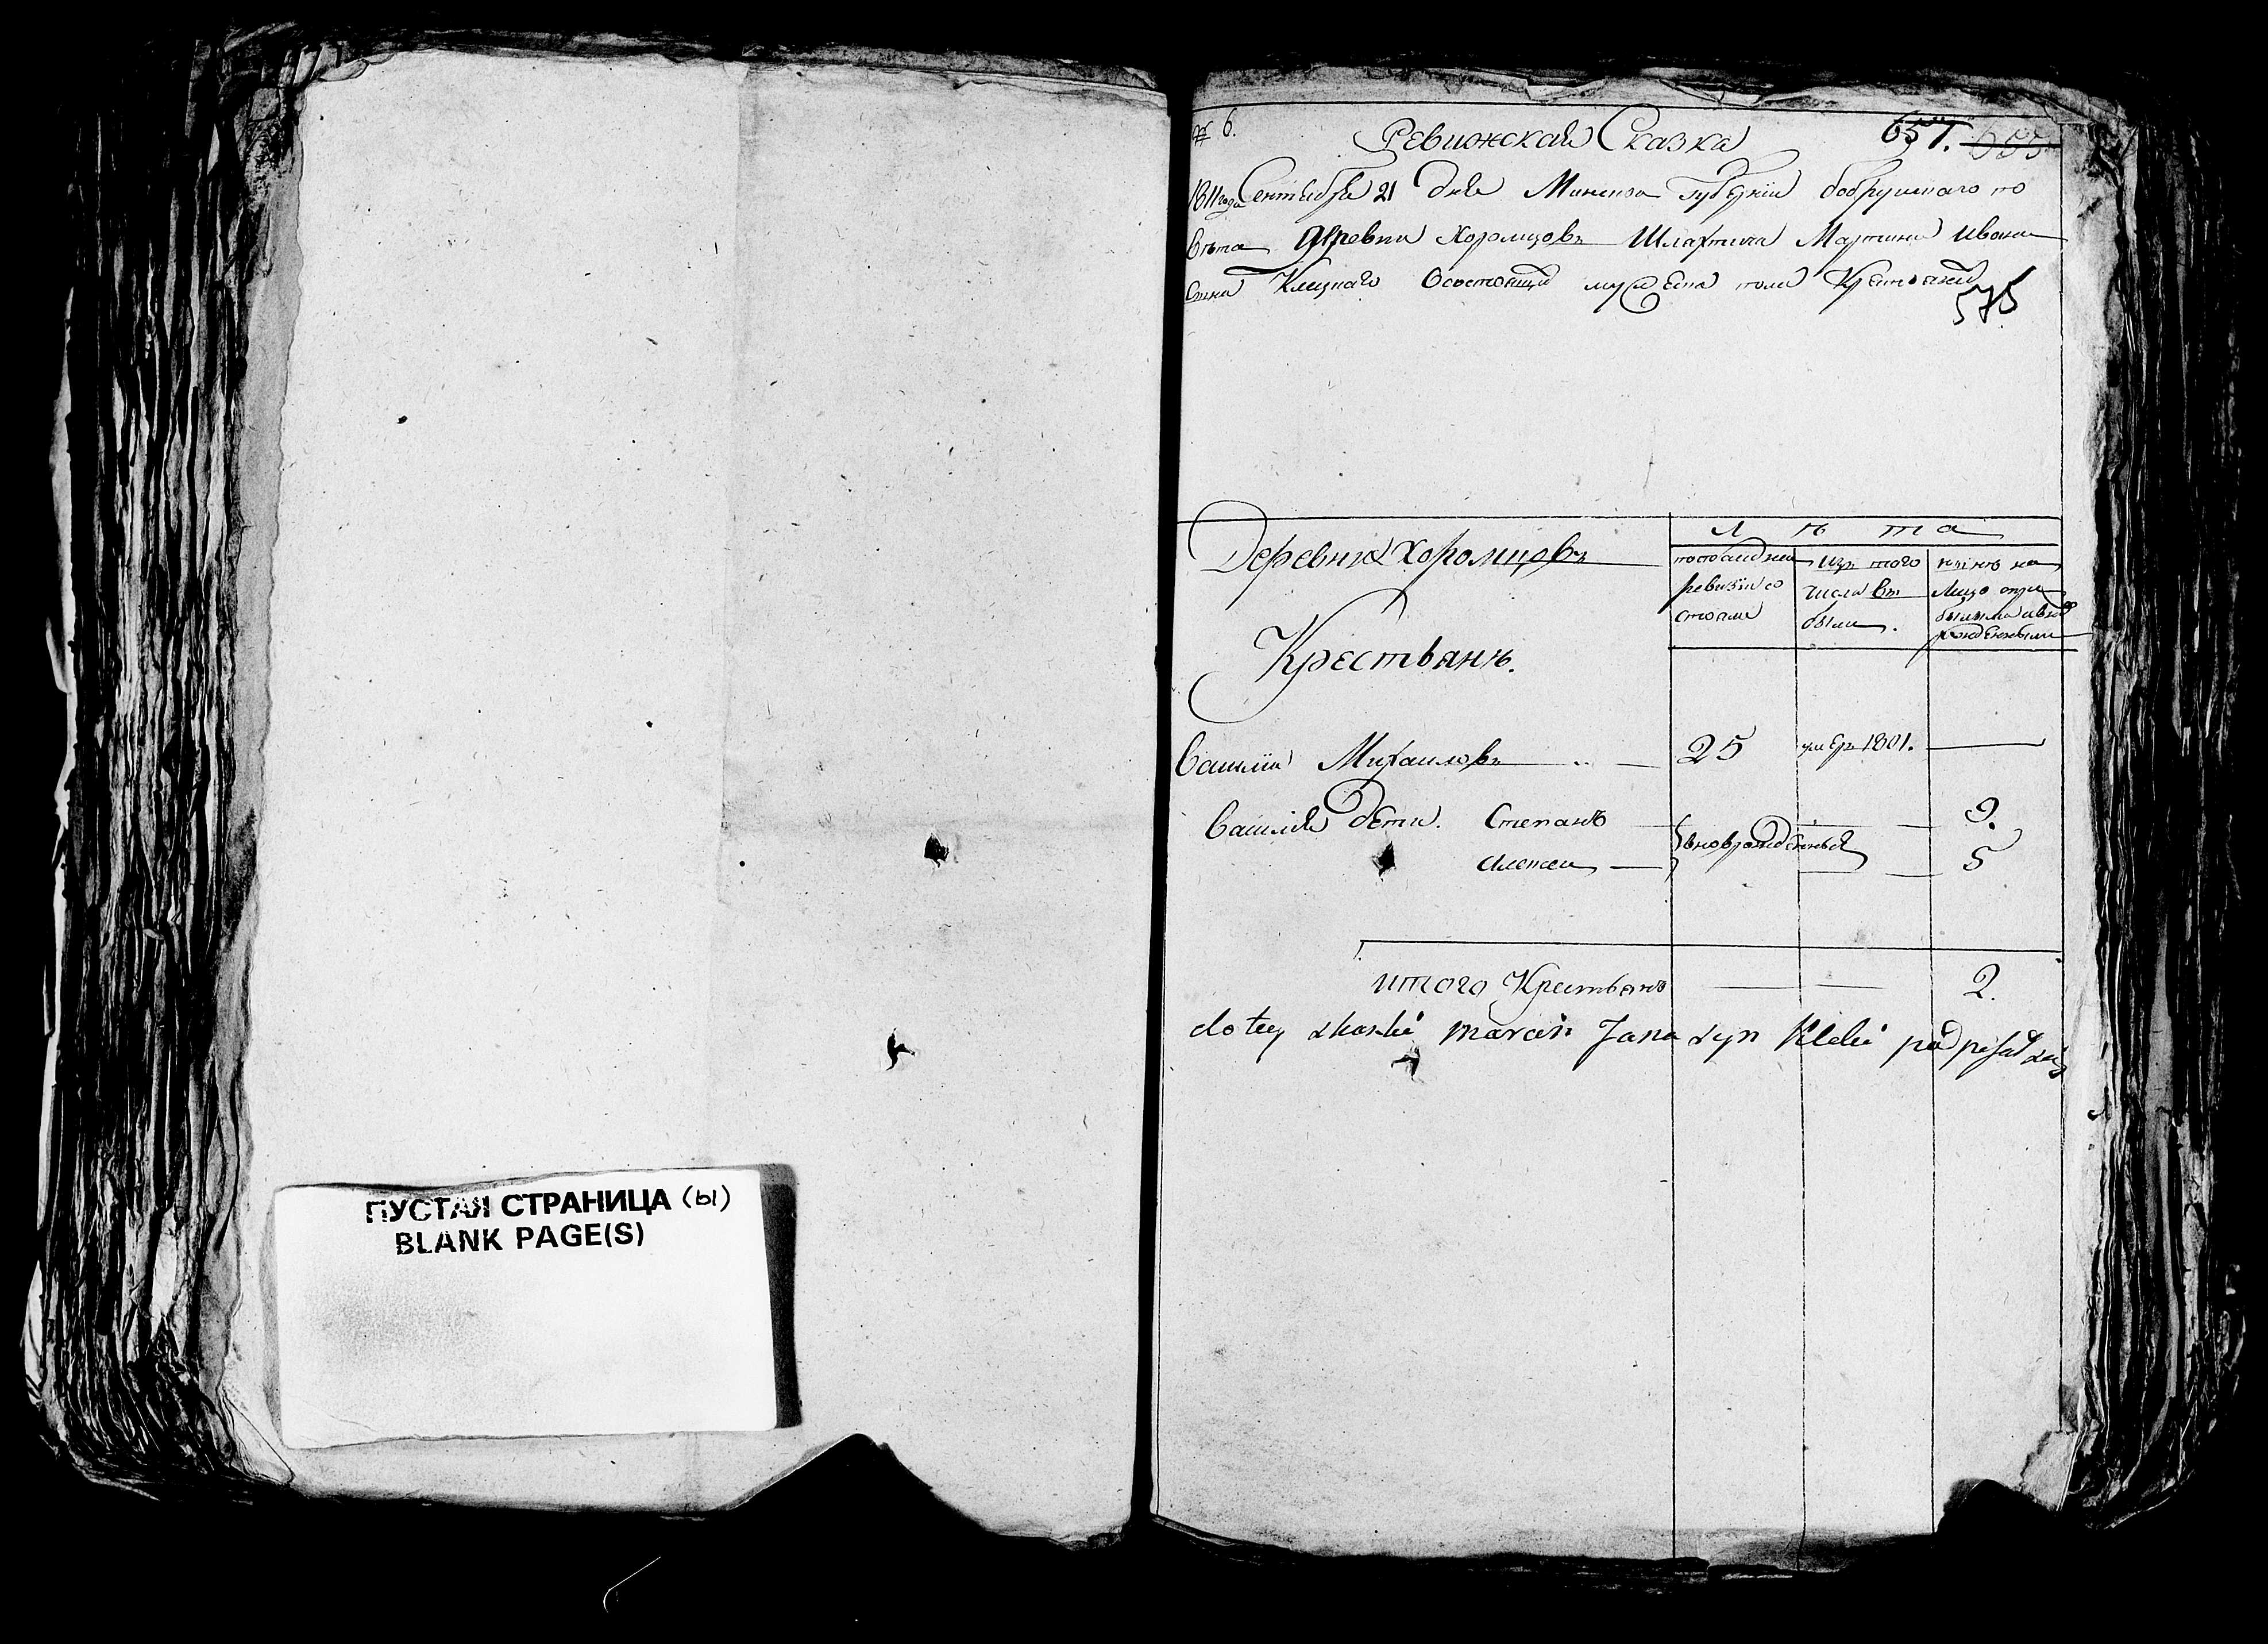 ПУСТАЯ СТРАНИЦА (ы)
BLANK PAGE(S)
№ 6.
Ревижская Сказка
657. 655
1811 года Сентебря 21 дня Минской Губернии бобруйскаго по
вѣта деревни Хоромцовъ Шляхтича Мартина Ивана
сына Клецкаго Осостоящи мужеска пола Крестьянъ
575
Деревня Хоромцовъ
Крестьянъ.
Л ѣ та
попоследней ревизіи состояли
изъ того числа выбыли.
нынѣ на лицо
Василий Михаиловъ 25 умеръ 1801.
Василія дети. Степанъ 9.
вноврожденные
Алексеи 5
итого Крестьянъ 2.
do tey skaski marcin Jana syn Klecki podpisał się